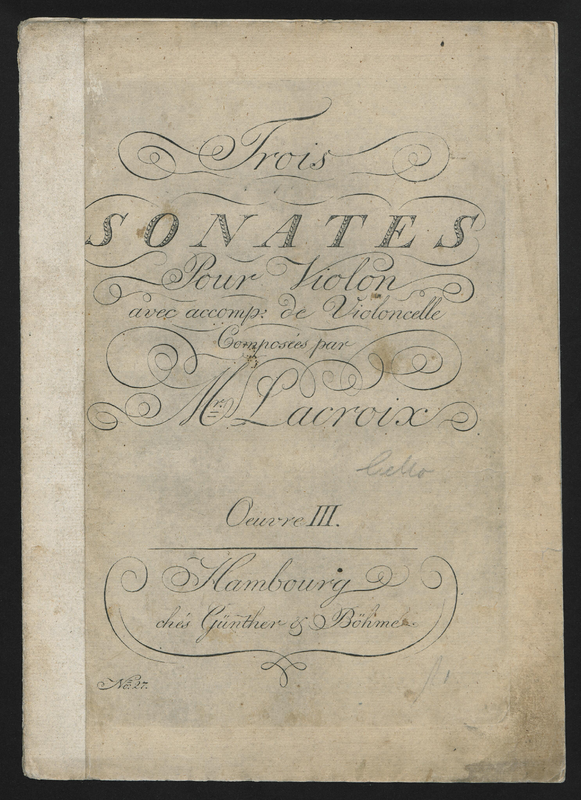 Trois
SONATES
Pour Violon
avec accomp: de Violoncelle
Composées par
Mr. Lacroix
Cello
Oeuvre III.
Hambourg
chés Günther & Böhme.
No. 27.